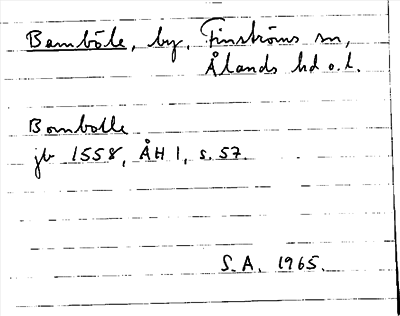 Bamböle, by, Finströms sn,
Ålands hd o. l.
Bombolle
jb 1558, ÅH 1, s. 57.
S. A. 1965.